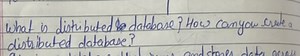 what is distributed database? How can you create
distributed database?
and stores data